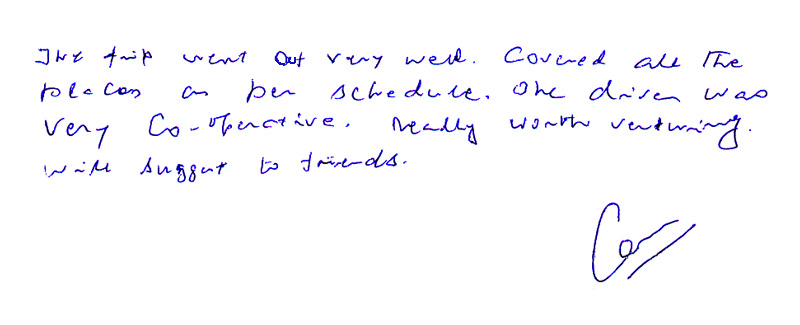 The trip went out very well. Covered all the
places as per schedule. The driver was
very Co-operative. Really worth venturing.
Will suggest to friends.